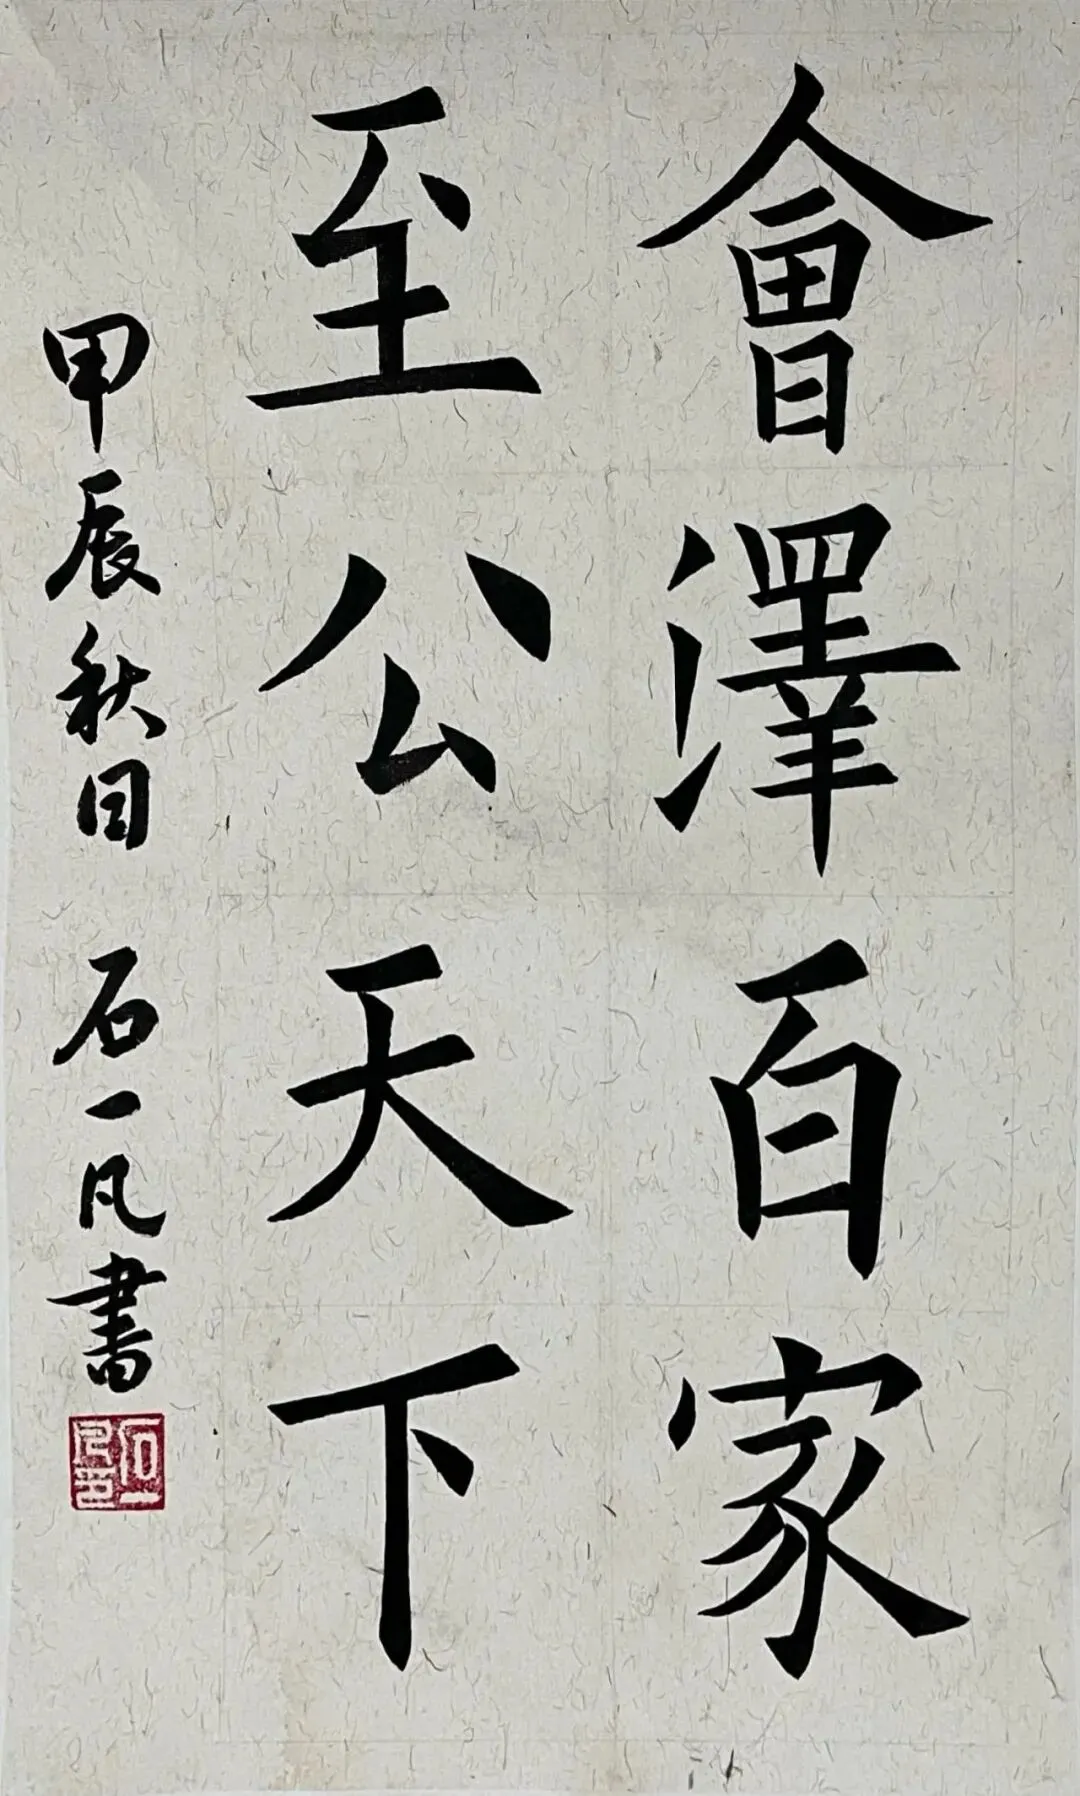 會澤百家
至公天下
甲辰秋日 石一凡書
石一凡印